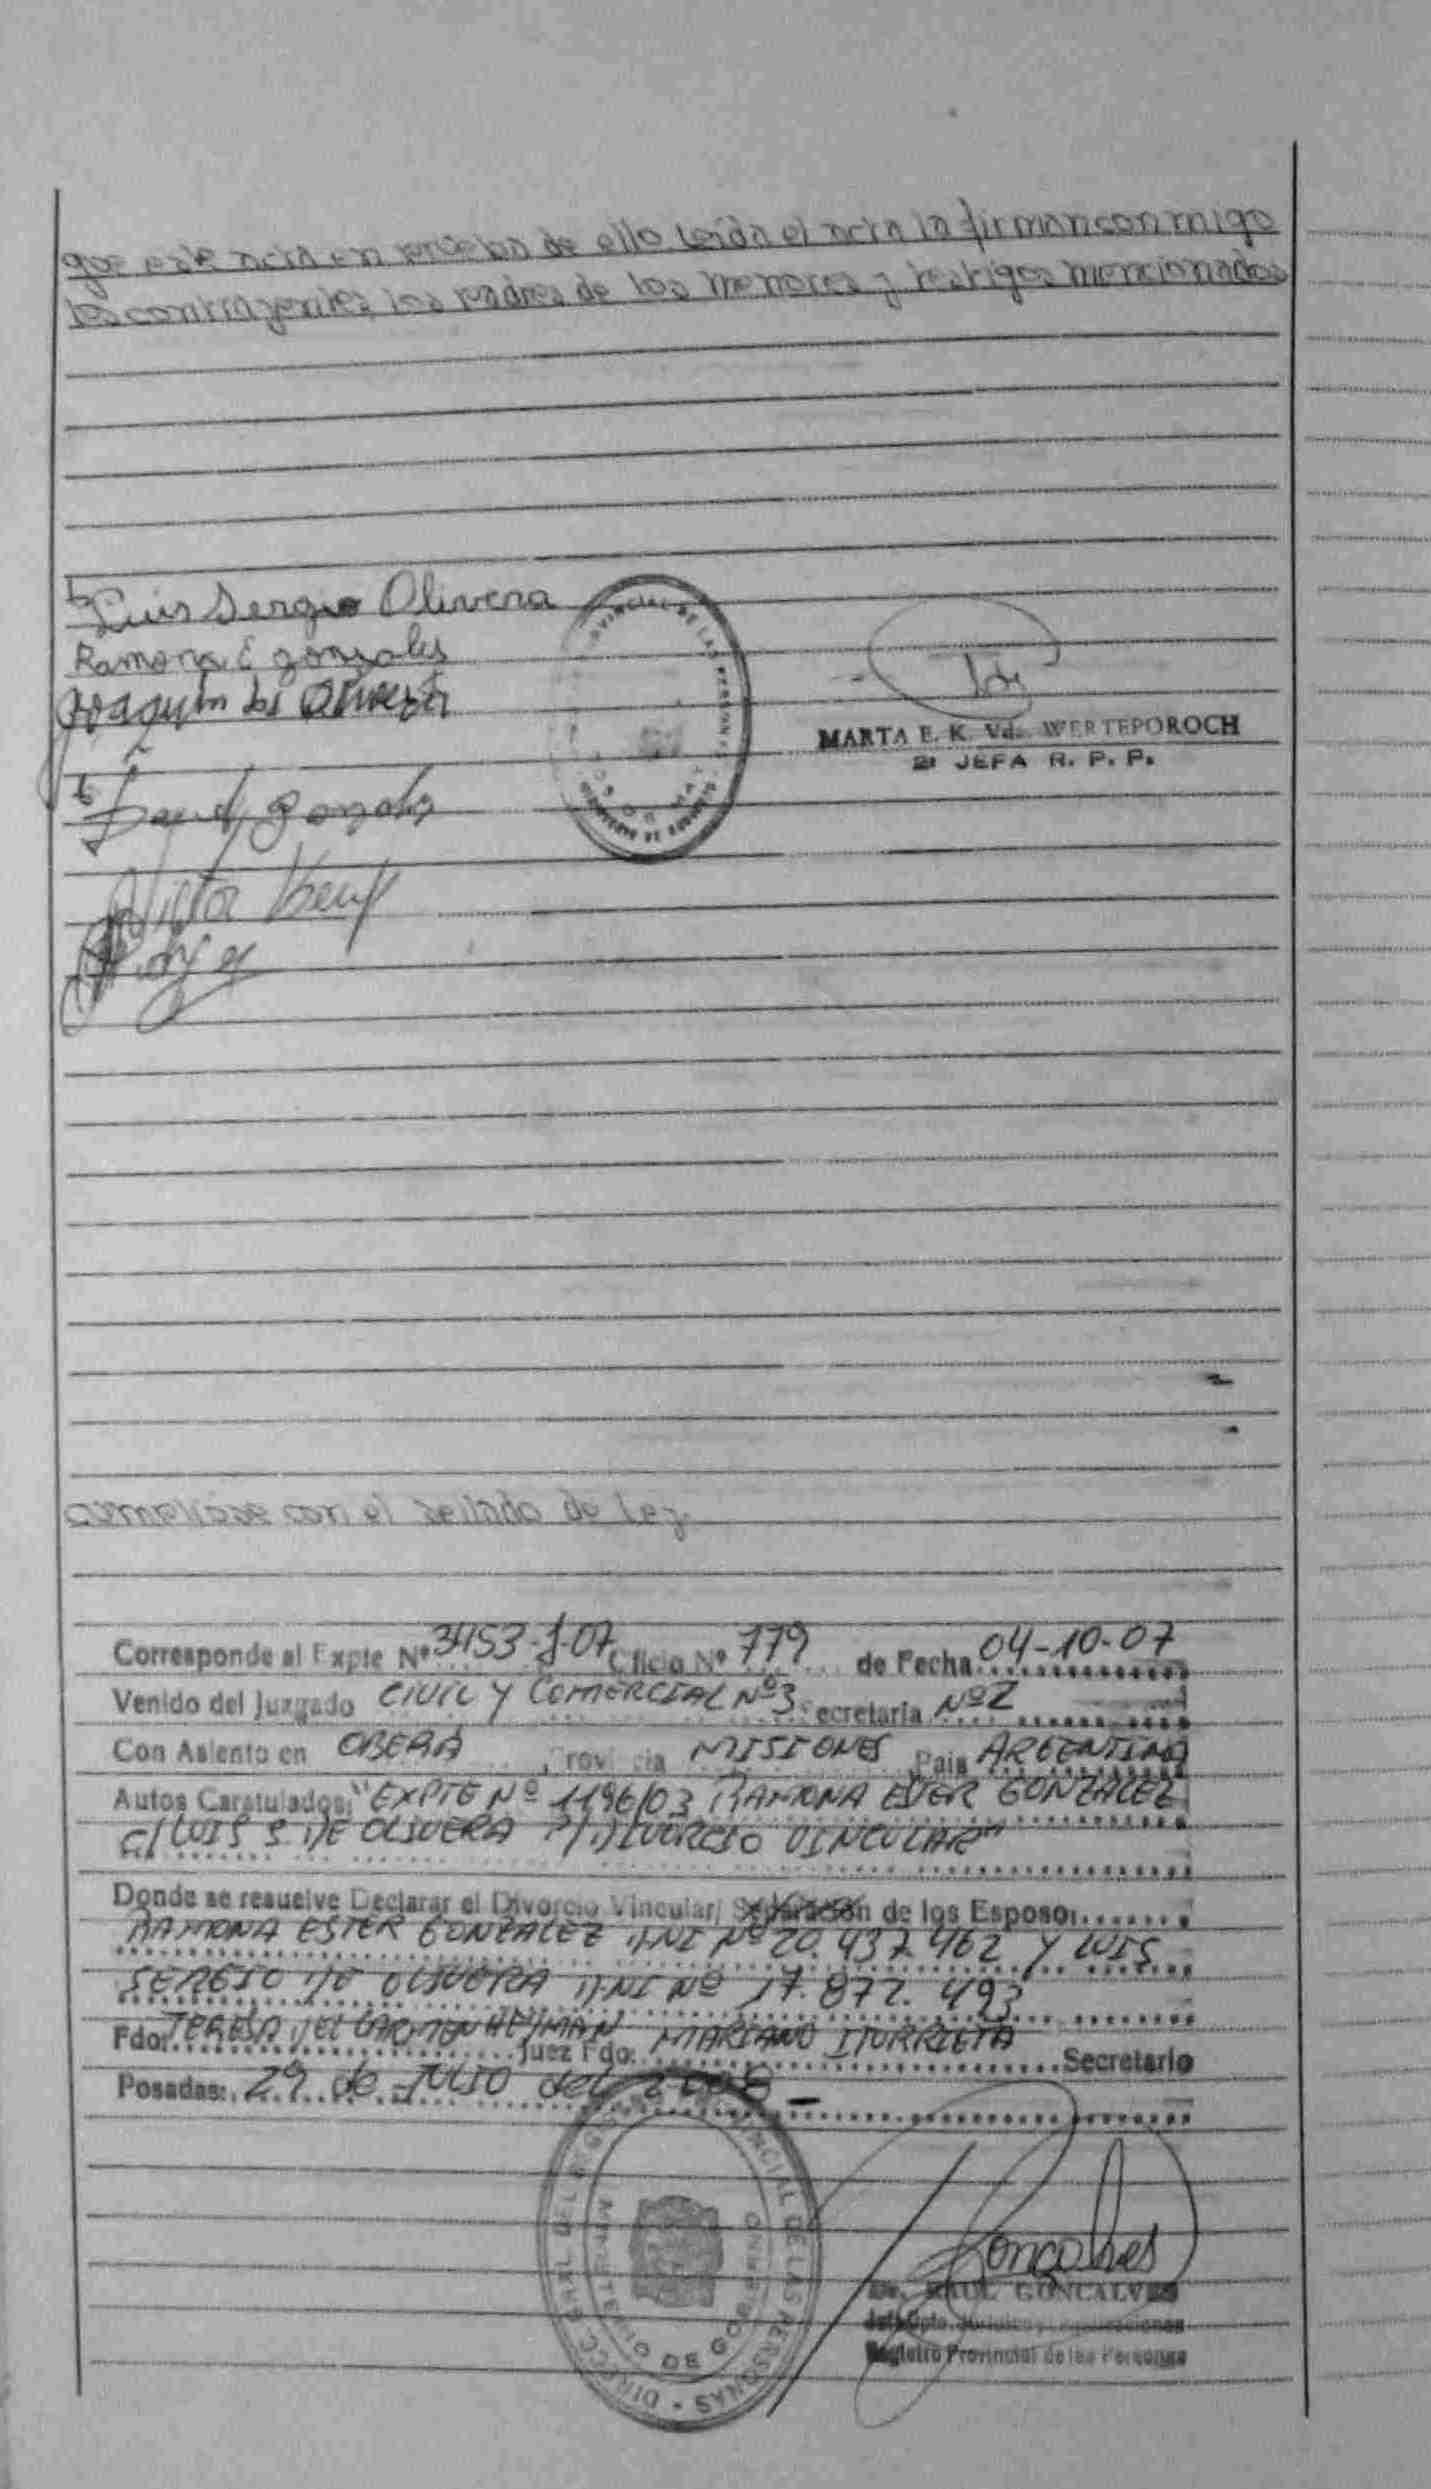 que este acta en prueba de ello leída el acta la firman conmigo
los contrayentes, los padres de los menores y testigos mencionados
Luis Sergio Olivera
Ramona E gonzales
Joaquin
MARTA E. K. Vda. WERTEPOROCH
JEFA R. P. P.
gonzalez
Victor
cumpliose con el sellado de Ley.
Corresponde al Expte Nº 3453-J-07 Oficio Nº 779 de Fecha 04-10-07
Venido del Juzgado CIVIL Y COMERCIAL Nº 3 Secretaria Nº 2
Con Asiento en OBERA Provincia MISIONES Pais ARGENTINA
Autos Caratulados: "EXPTE Nº 1196/03 RAMONA ESTER GONZALEZ
C/ LUIS S. DE OLIVERA S/ DIVORCIO VINCULAR"
Donde se resuelve Declarar el Divorcio Vincular/ Separación de los Esposos
RAMONA ESTER GONZALEZ DNI Nº 20.437.462 Y LUIS
SERGIO DE OLIVERA DNI Nº 17.872.493
Fdo: TERESA DEL CARMEN HEYMAN Juez Fdo: MARIANO ITURRIETA Secretario
Posadas: 29 de JULIO del
DIRECC. GRAL. DEL REGISTRO PROVINCIAL DE LAS PERSONAS
MINISTERIO DE GOBIERNO
Goncalves
RAUL GONCALVES
Registro Provincial de las Personas